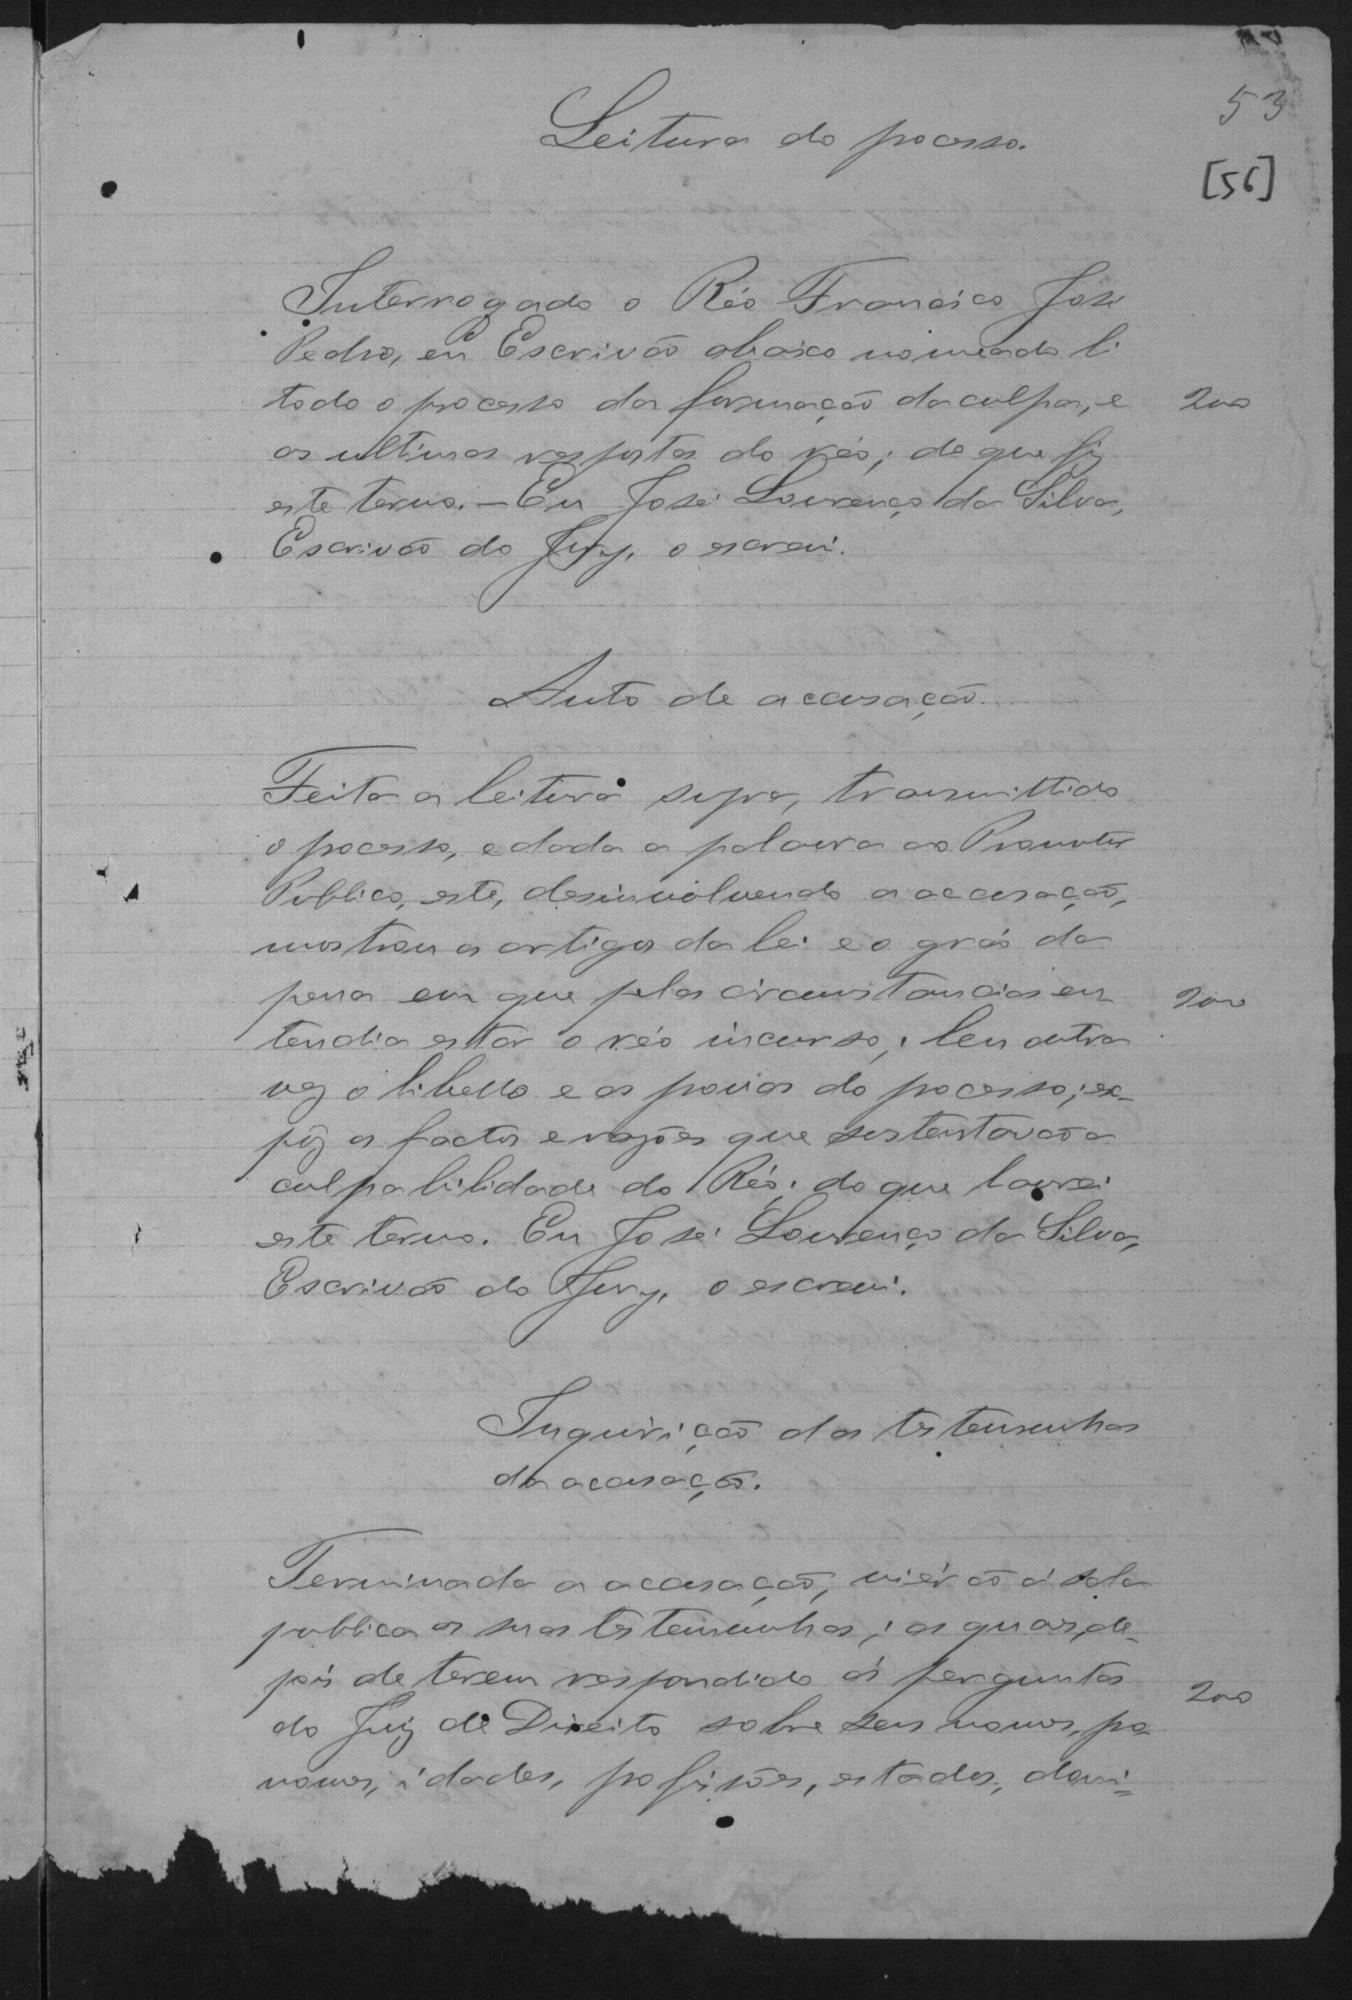 53
[56]
Leitura do pocesso.
Interrogado o Réo Francisco José
Pedro, eu Escrivão abaixo nomeado li
todo o processo da formação da culpa, e
as ultimas respostas do réo; de que fiz
este termo. — Eu José Lourenço da Silva,
Escrivão do Jury, o escrevi.
200
Auto de accusação.
Feita a leitura supra, transmittido
o pocesso, e dada a palavra ao Promotor
Publico, este, desinvolvendo a accusação,
mostrou os artigos da lei e o gráo da
pena em que pelas circunstancias en
tendia estar o réo incurso; leu outra
vez o libello e as provas do pocesso; ex-
pôz os factos e razões que sustentavão a
culpabilidade do Réo; do que lavrei
este termo. Eu José Lourenço da Silva,
Escrivão do Jury, o escrevi.
200
Inquirição das testemunhas
da accusação.
Terminada a accusação, viérão á sala
publica as suas testemunhas; as quaes, de-
pois de terem respondido ás perguntas
do Juiz de Direito sobre seus nomes, pro
nomes, idades, profissões, estados, domi=
200